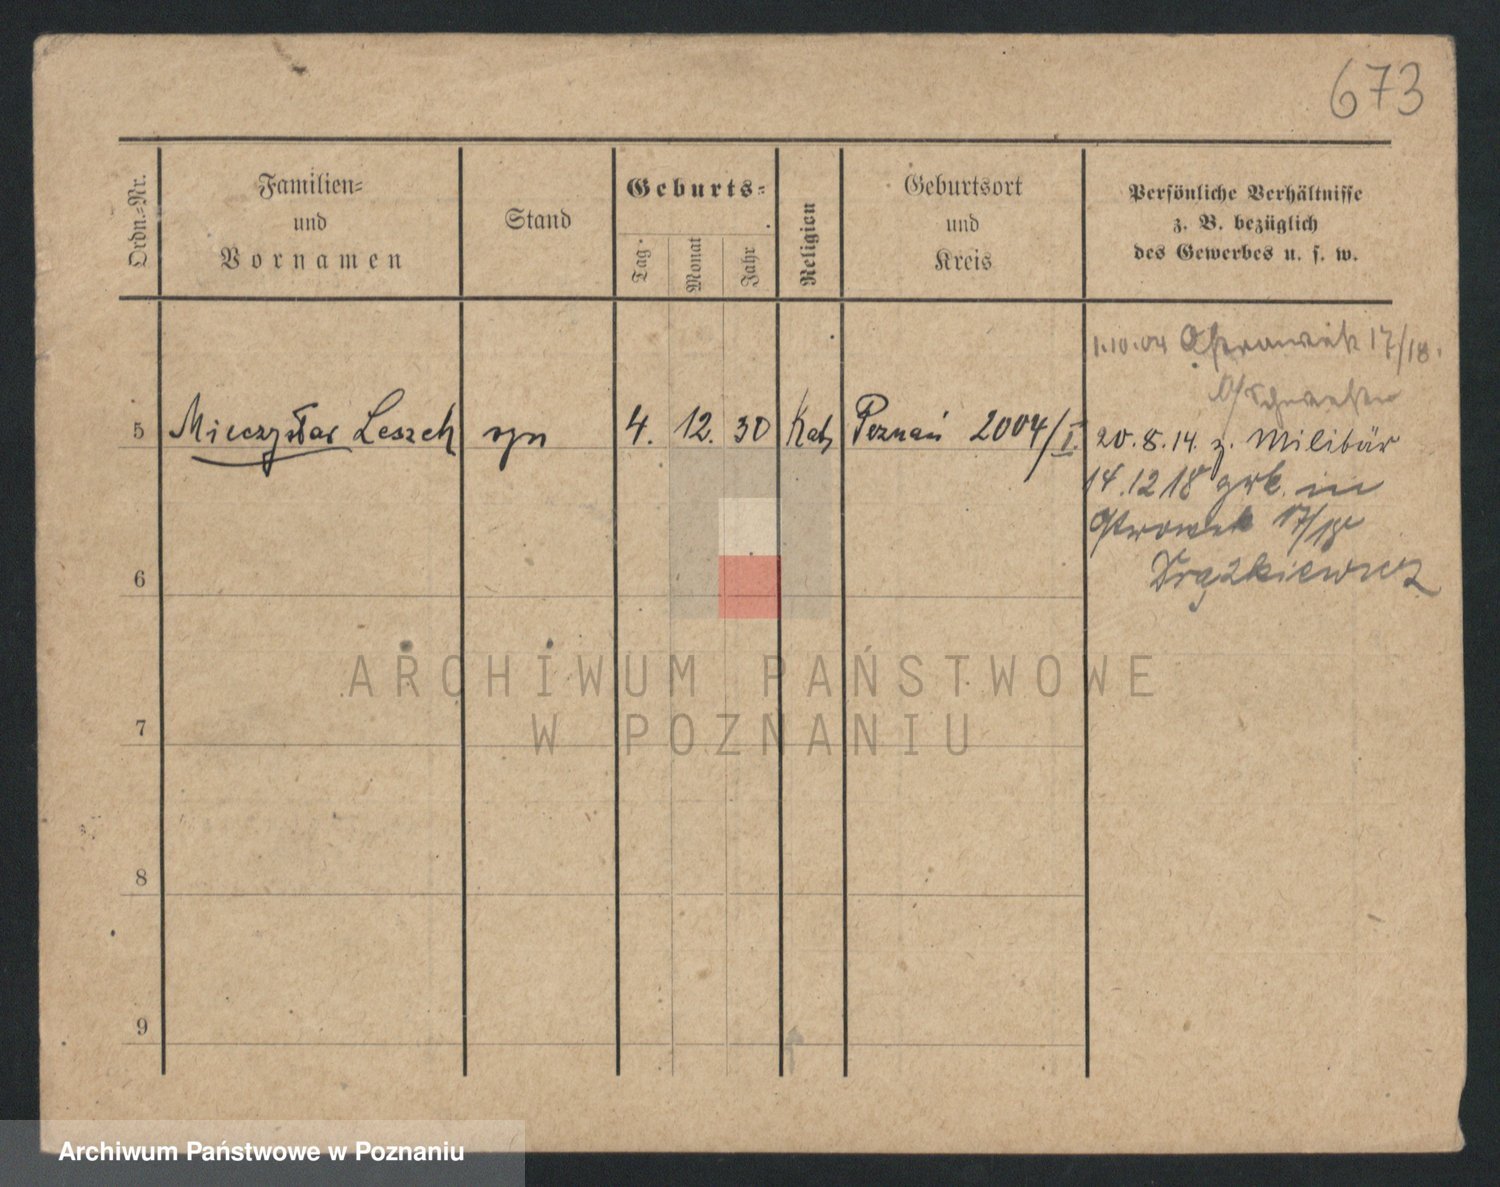 673
Ordn.-Nr.
Familien-
und
Vornamen
Stand
Geburts-
Tag
Monat
Jahr
Religion
Geburtsort
und
Kreis
Persönliche Verhältnisse
z. B. bezüglich
des Gewerbes u. s. w.
1.10.04 17/18.
5 Mieczysław Leszek syn 4. 12. 30 Kat. Poznań 2004/I.
20.8.14. z. Militär
14.12.18 in
Ostrowek 17/18
Drążkiewicz
6
7
8
9
ARCHIWUM PAŃSTWOWE
W POZNANIU
Archiwum Państwowe w Poznaniu